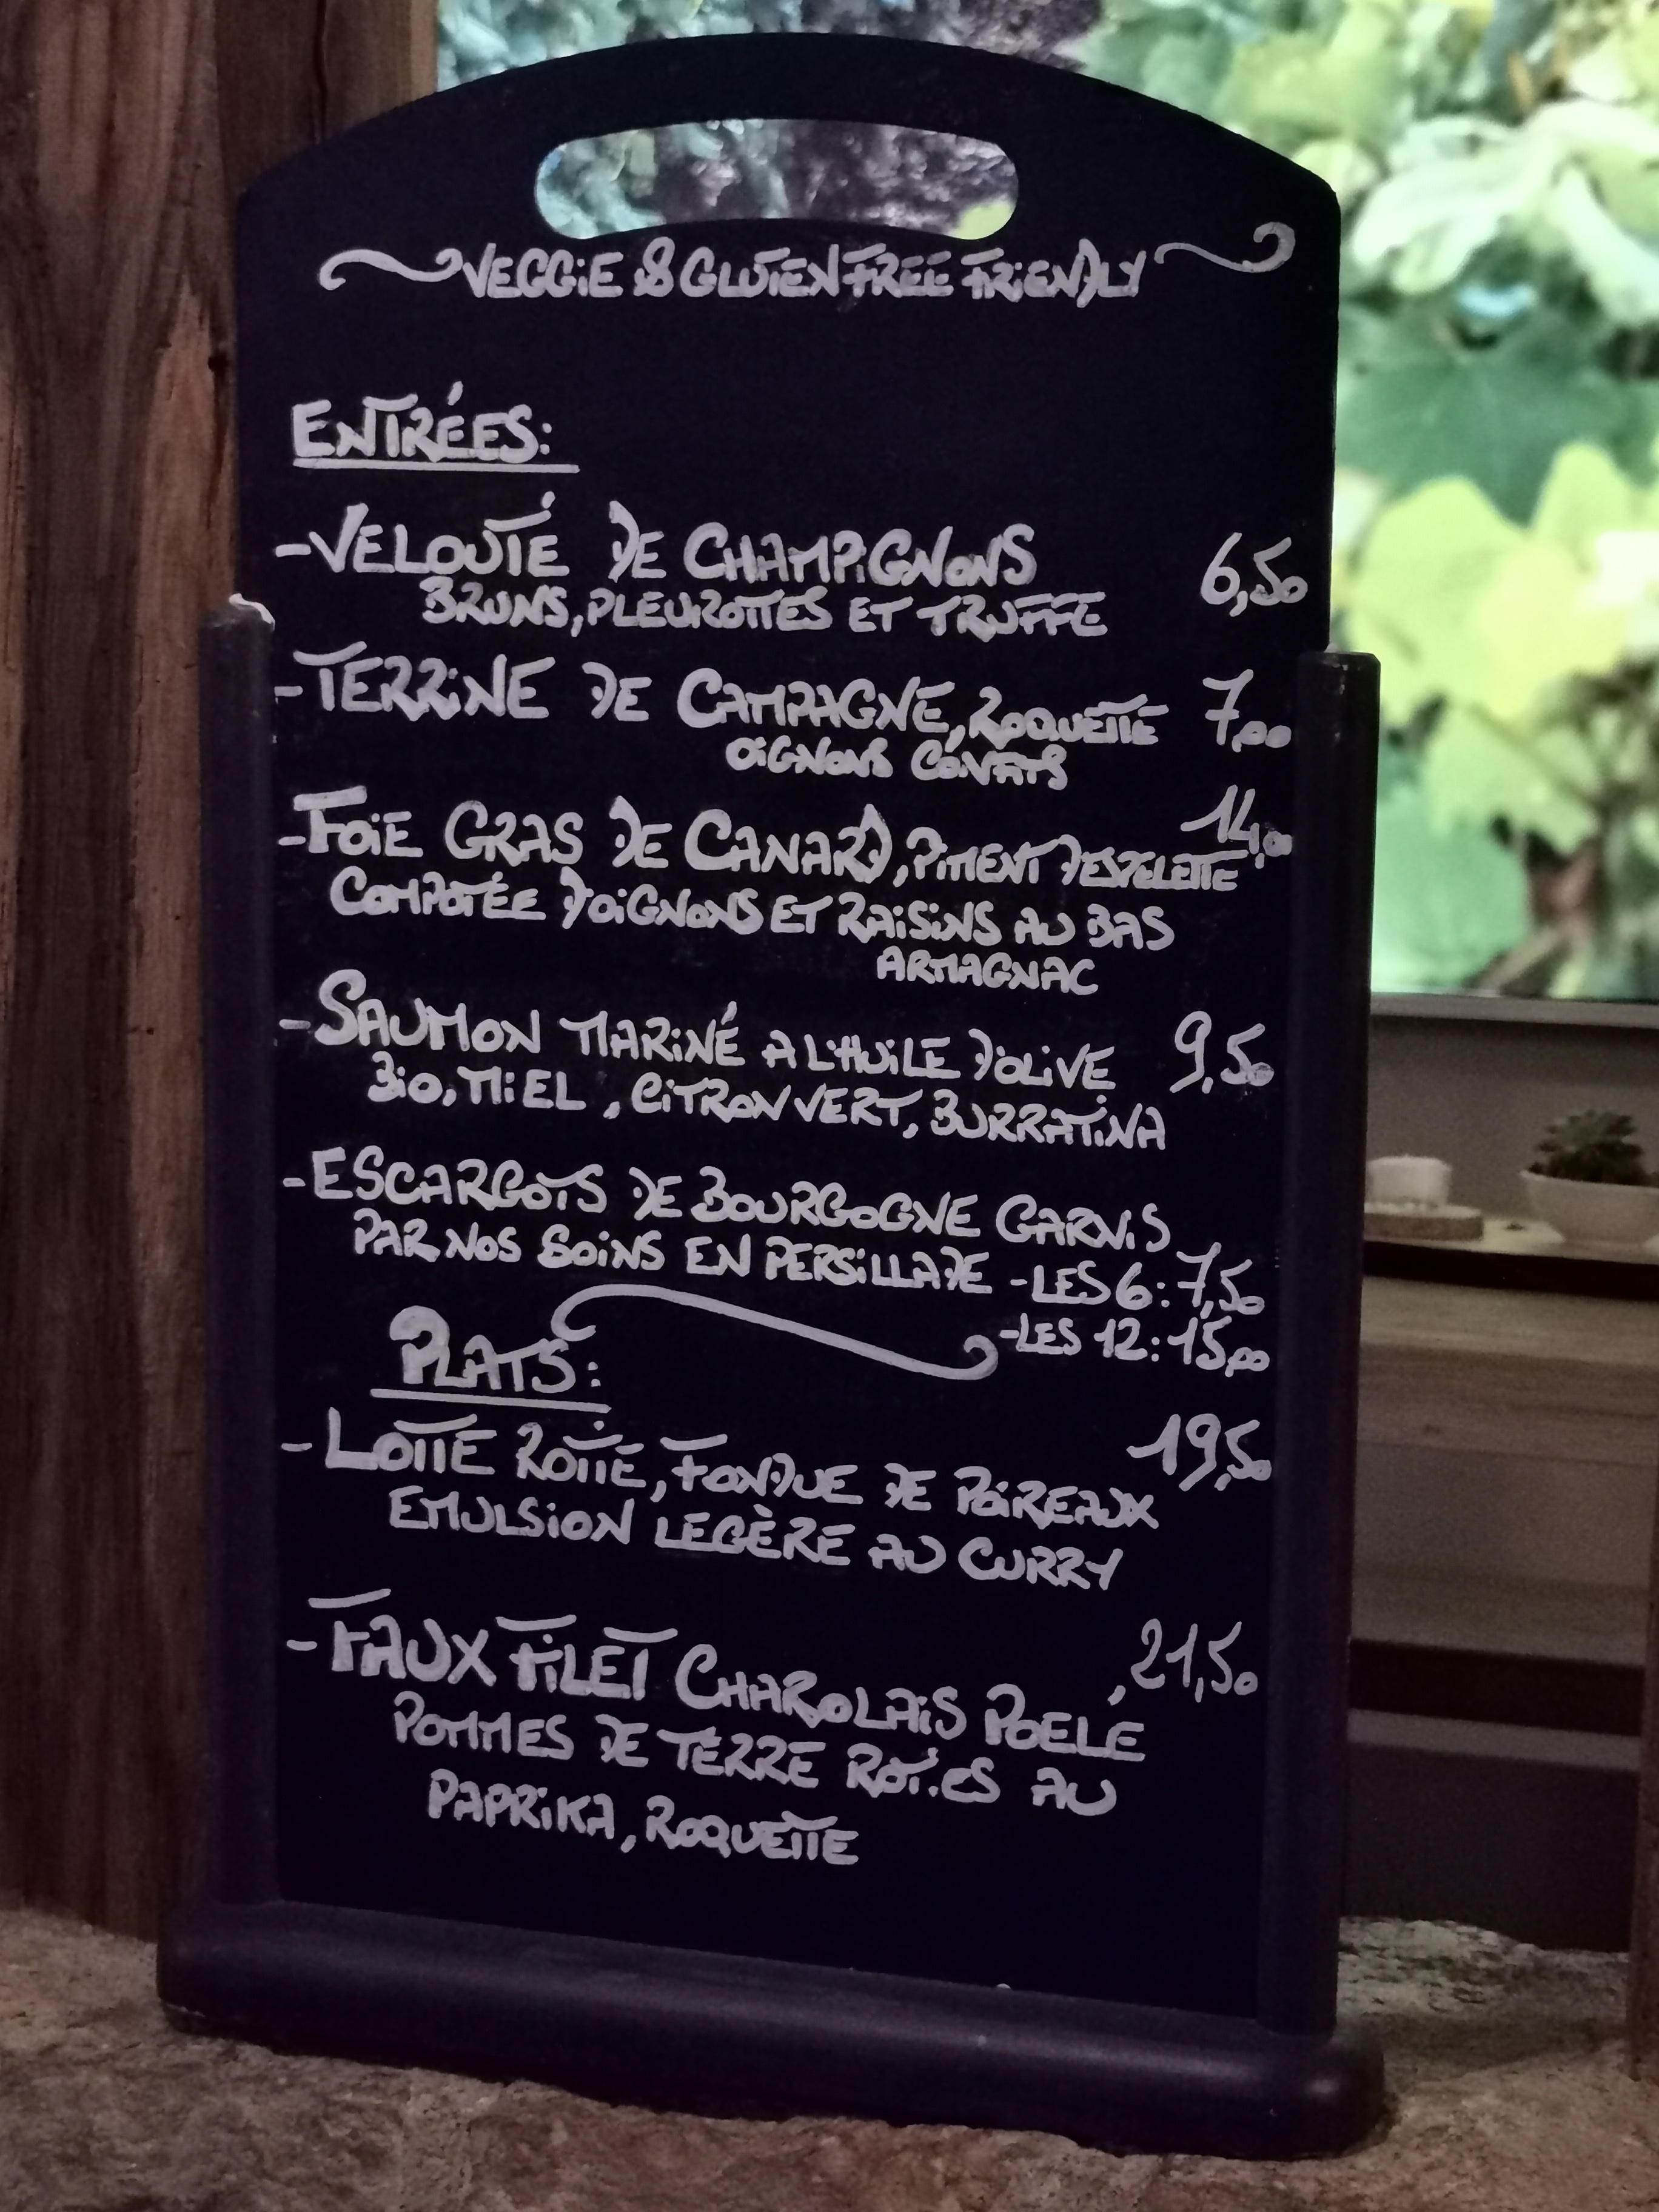 VEGGIE & GLUTEN FREE FRIENDLY
ENTRÉES:
-VELOUTÉ DE CHAMPIGNONS 6,50
BRUNS, PLEUROTTES ET TRUFFE
-TERRINE DE CAMPAGNE, ROQUETTE 7,00
OIGNONS CONFITS
-FOIE GRAS DE CANARD, PIMENT D'ESPELETTE 14,00
COMPOTÉE D'OIGNONS ET RAISINS AU BAS
ARMAGNAC
-SAUMON MARINÉ A L'HUILE D'OLIVE 9,50
BIO, MIEL, CITRON VERT, BURRATINA
-ESCARGOTS DE BOURGOGNE GARNIS
PAR NOS SOINS EN PERSILLADE -LES 6: 7,50
-LES 12: 15,00
PLATS:
-LOTTE ROTIE, FONDUE DE POIREAUX 19,50
EMULSION LEGÈRE AU CURRY
-FAUX FILET CHAROLAIS POELÉ 21,50
POMMES DE TERRE ROTIES AU
PAPRIKA, ROQUETTE